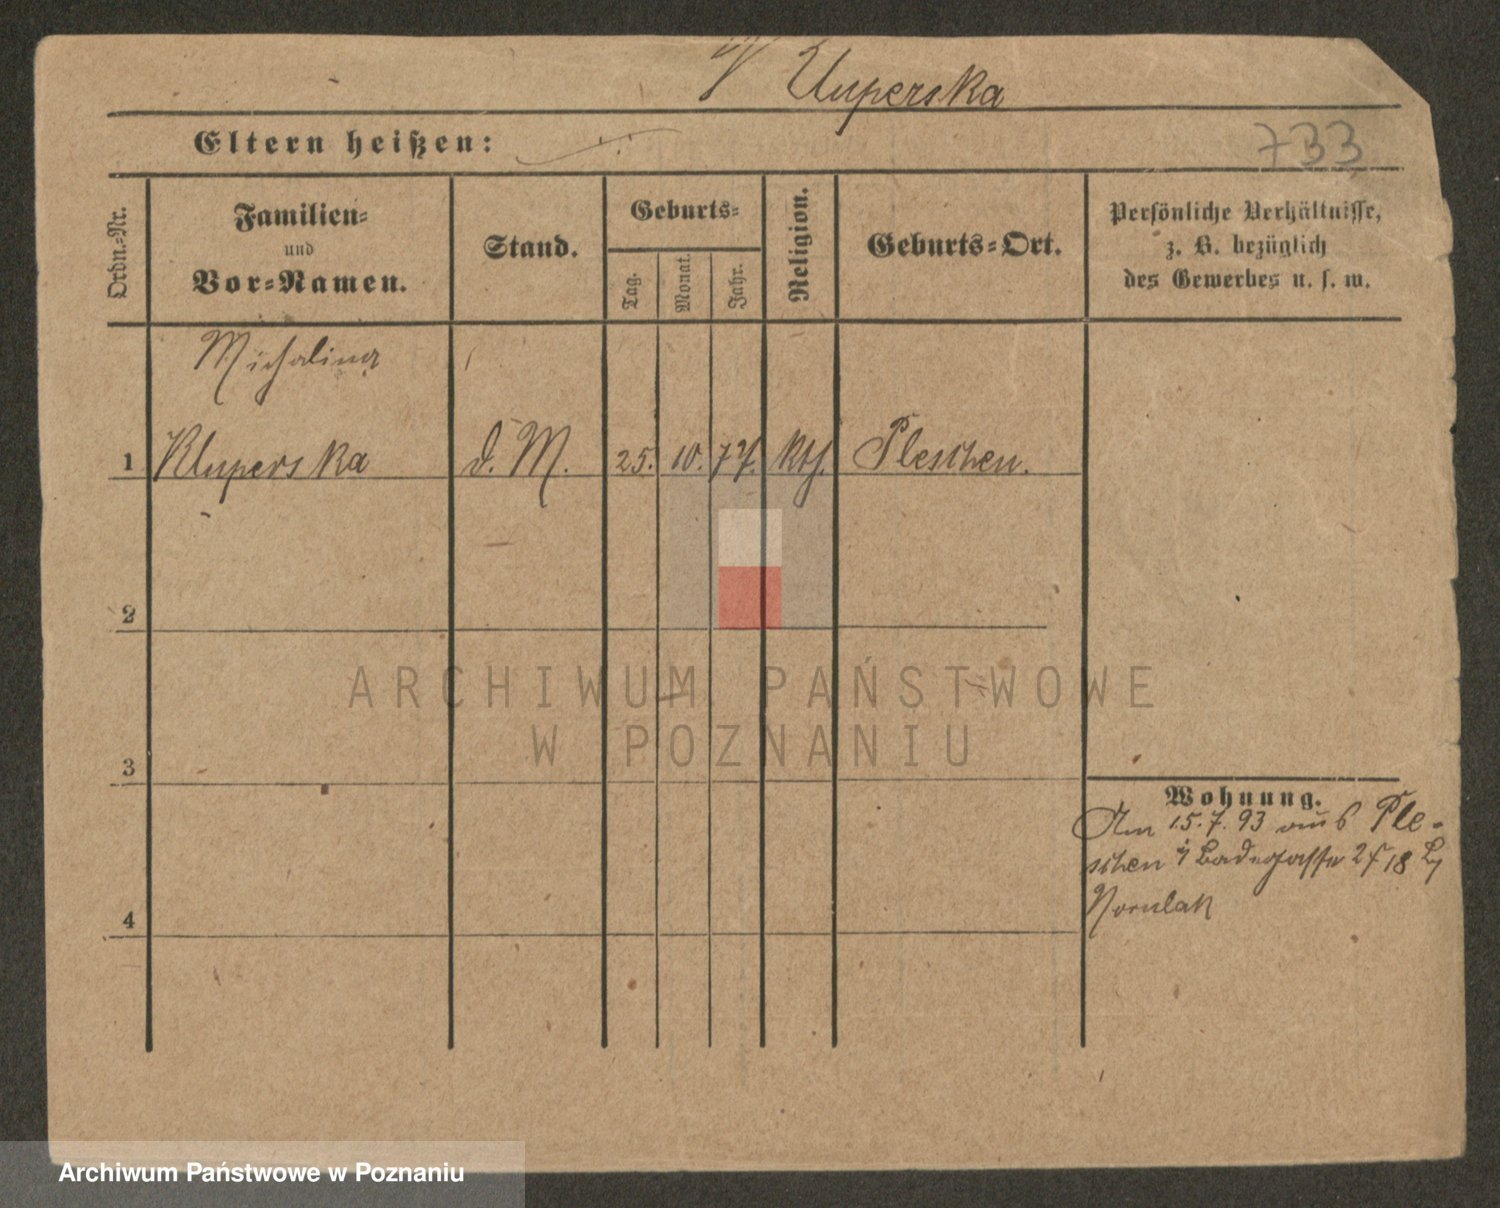 Kluperska
Eltern heißen:
733
Ordn.-Nr.
Familien-
und
Vor-Namen.
Stand.
Geburts-
Tag.
Monat.
Jahr.
Religion.
Geburts-Ort.
Persönliche Verhältnisse,
z. B. bezüglich
des Gewerbes u. s. w.
Michalina
1 Kluperska d. M. 25. 10. 77. Kth. Pleschen.
2
3
4
Wohnung.
Am 15.7.93 aus Ple-
schen Badegasse 18
ARCHIWUM PAŃSTWOWE
W POZNANIU
Archiwum Państwowe w Poznaniu